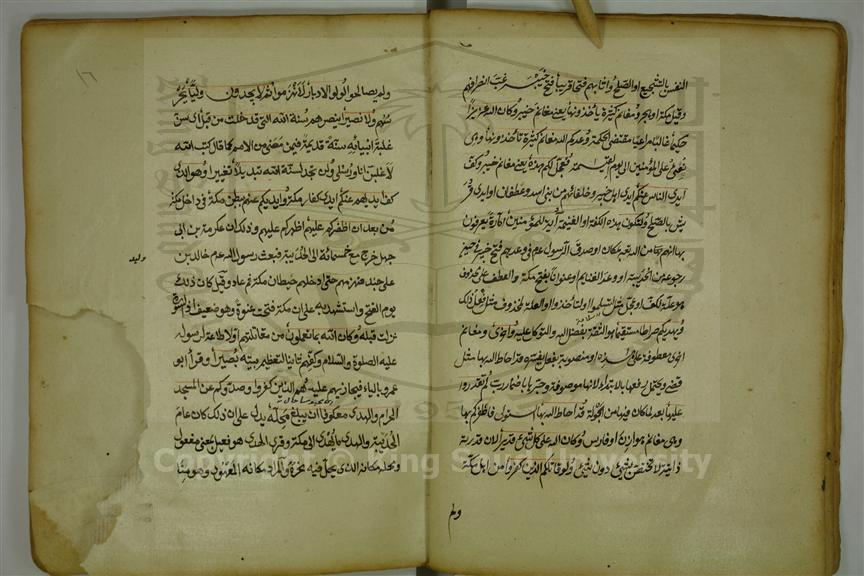 النفس بالتشجيع او الصلح واثابهم فتحا قريبا فتح خيبر غب انصرافهم
وقيل مكة او هجر ومغانم كثيرة يأخذونها يعنى مغانم خيبر وكان الله عزيزا
حكيما غالبا مراعيا مقتضى الحكمة وعدكم الله مغانم كثيرة تأخذونها وهى
ما يفئ على المؤمنين الى يوم القيمة فعجل لكم هذه يعنى مغانم خيبر وكف
ايدى الناس عنكم ايدى اهل خيبر وحلفائهم من بنى اسد وغطفان او ايدى قر
يش بالصلح ولتكون هذه الكفة او الغنيمة آية للمؤمنين امارة يعرفون
بها انهم من الله بمكان او صدق الرسول عم فى وعدهم فتح خيبر فى حين
رجوعه من الحديبية او وعد المغانم او عنوانا لفتح مكة والعطف على محذوف
هو علة لكف او عجل مثل لتسلموا او لتأخذوا او العلة لمحذوف مثل فعل ذلك
ويهديكم صراطا مستقيما هو الثقة بفضل الله والتوكل عليه واخرى ومغانم
اخرى معطوفة على هذه او منصوبة بفعل يفسره قد احاط الله بها مثل
قضى ويحتمل رفعها بالابتداء لانها موصوفة وجرها باضمار رب لم تقدروا
عليها بعد لما كان فيها من الجولة قد احاط الله بها استولى فاظفركم بها
وهى مغانم هوازن او فارس وكان الله على كل شئ قديرا لان قدرته
ذاتية لا تختص بشئ دون شئ ولو قاتلكم الذين كفروا من اهل مكة
ولم
١٦
ولم يصالحوا لولوا الادبار لانهزموا ثم لا يجدون وليا يحر
سهم ولا نصيرا ينصرهم سنة الله التى قد خلت من قبل اى سن
غلبة انبيائه سنة قديمة فيمن مضى من الامم كما قال كتب الله
لاغلبن انا ورسلى ولن تجد لسنة الله تبديلا تغييرا وهو الذى
كف ايديهم عنكم ايدى كفار مكة وايديكم عنهم ببطن مكة فى داخل مكة
من بعد ان اظفركم عليهم اظهركم عليهم وذلك ان عكرمة بن ابى
جهل خرج مع خمسمائة الى الحديبية فبعث رسول الله عم خالد بن
وليد
على جند فهزمهم حتى ادخلهم حيطان مكة ثم عاد وقيل كان ذلك
يوم الفتح واستشهد به على ان مكة فتحت عنوة وهو ضعيف اذ السورة
نزلت قبله وكان الله بما تعملون من مقاتلتهم اولا طاعة لرسوله
عليه الصلوة والسلام وكفهم ثانيا لتعظيم بيته بصيرا وقرأ ابو
عمرو بالياء فيجازيهم عليه هم الذين كفروا وصدوكم عن المسجد
الحرام والهدى معكوفا ان يبلغ محله يدل على ان ذلك كان عام
الحديبية والهدى ما يهدى الى مكة وقرئ الهدى هو فعيل بمعنى مفعول
ومحله مكان الذى يحل فيه نحره والمراد مكانه المعهود وهو منا
Copyright © King Saud University